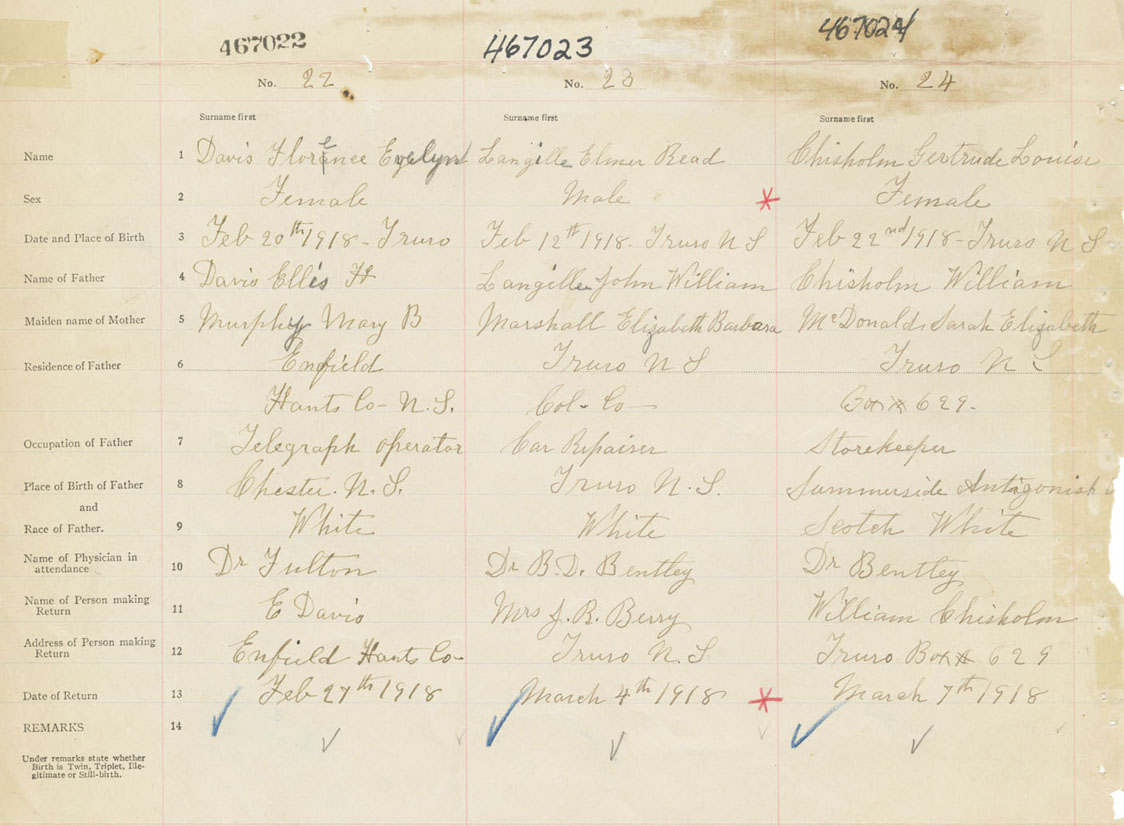 467022 467023 467024
No. 22 No. 23 No. 24
Surname first Surname first Surname first
Name 1 Davis Florence Evelyn Langille Elmer Read Chisholm Gertrude Louise
Sex 2 Female Male * Female
Date and Place of Birth 3 Feb 20th 1918 - Truro Feb 12th 1918. Truro N S Feb 22nd 1918 - Truro N S
Name of Father 4 Davis Ellis H Langille John William Chisholm William
Maiden name of Mother 5 Murphy Mary B Marshall Elizabeth Barbara McDonald Sarah Elizabeth
Residence of Father 6 Enfield Truro N S Truro N S
Hants Co - N.S. Col - Co - Box 629.
Occupation of Father 7 Telegraph operator Car Repairer Storekeeper
Place of Birth of Father 8 Chester. N.S. Truro N.S. Summerside Antigonish
and
Race of Father. 9 White White Scotch White
Name of Physician in
attendance 10 Dr Fulton Dr B.D. Bentley Dr Bentley
Name of Person making
Return 11 E Davis Mrs J.R. Berry William Chisholm
Address of Person making
Return 12 Enfield Hants Co - Truro N.S Truro Box 629
Date of Return 13 Feb 27th 1918 March 4th 1918 * March 7th 1918
REMARKS 14
Under remarks state whether
Birth is Twin, Triplet, Ille-
gitimate or Still-birth.